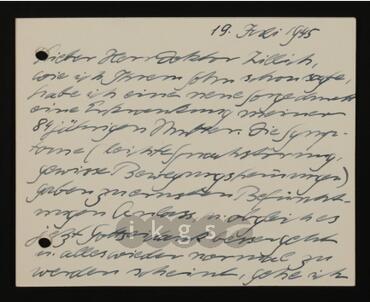 19. Juli 1945
Lieber Herr Doktor Zillich,
wie ich Ihrem Sohn schon sagte,
habe ich eine neue Sorge durch
eine Erkrankung meiner
84jährigen Mutter. Die Symp-
tome (leichte Sprachstörung,
gewisse Bewegungshemmungen)
gaben zu ernsten Befürcht-
ungen Anlass, u. obgleich es
jetzt Gottseidank
u. alles wieder normal zu
werden scheint, gehe ich
ikgs